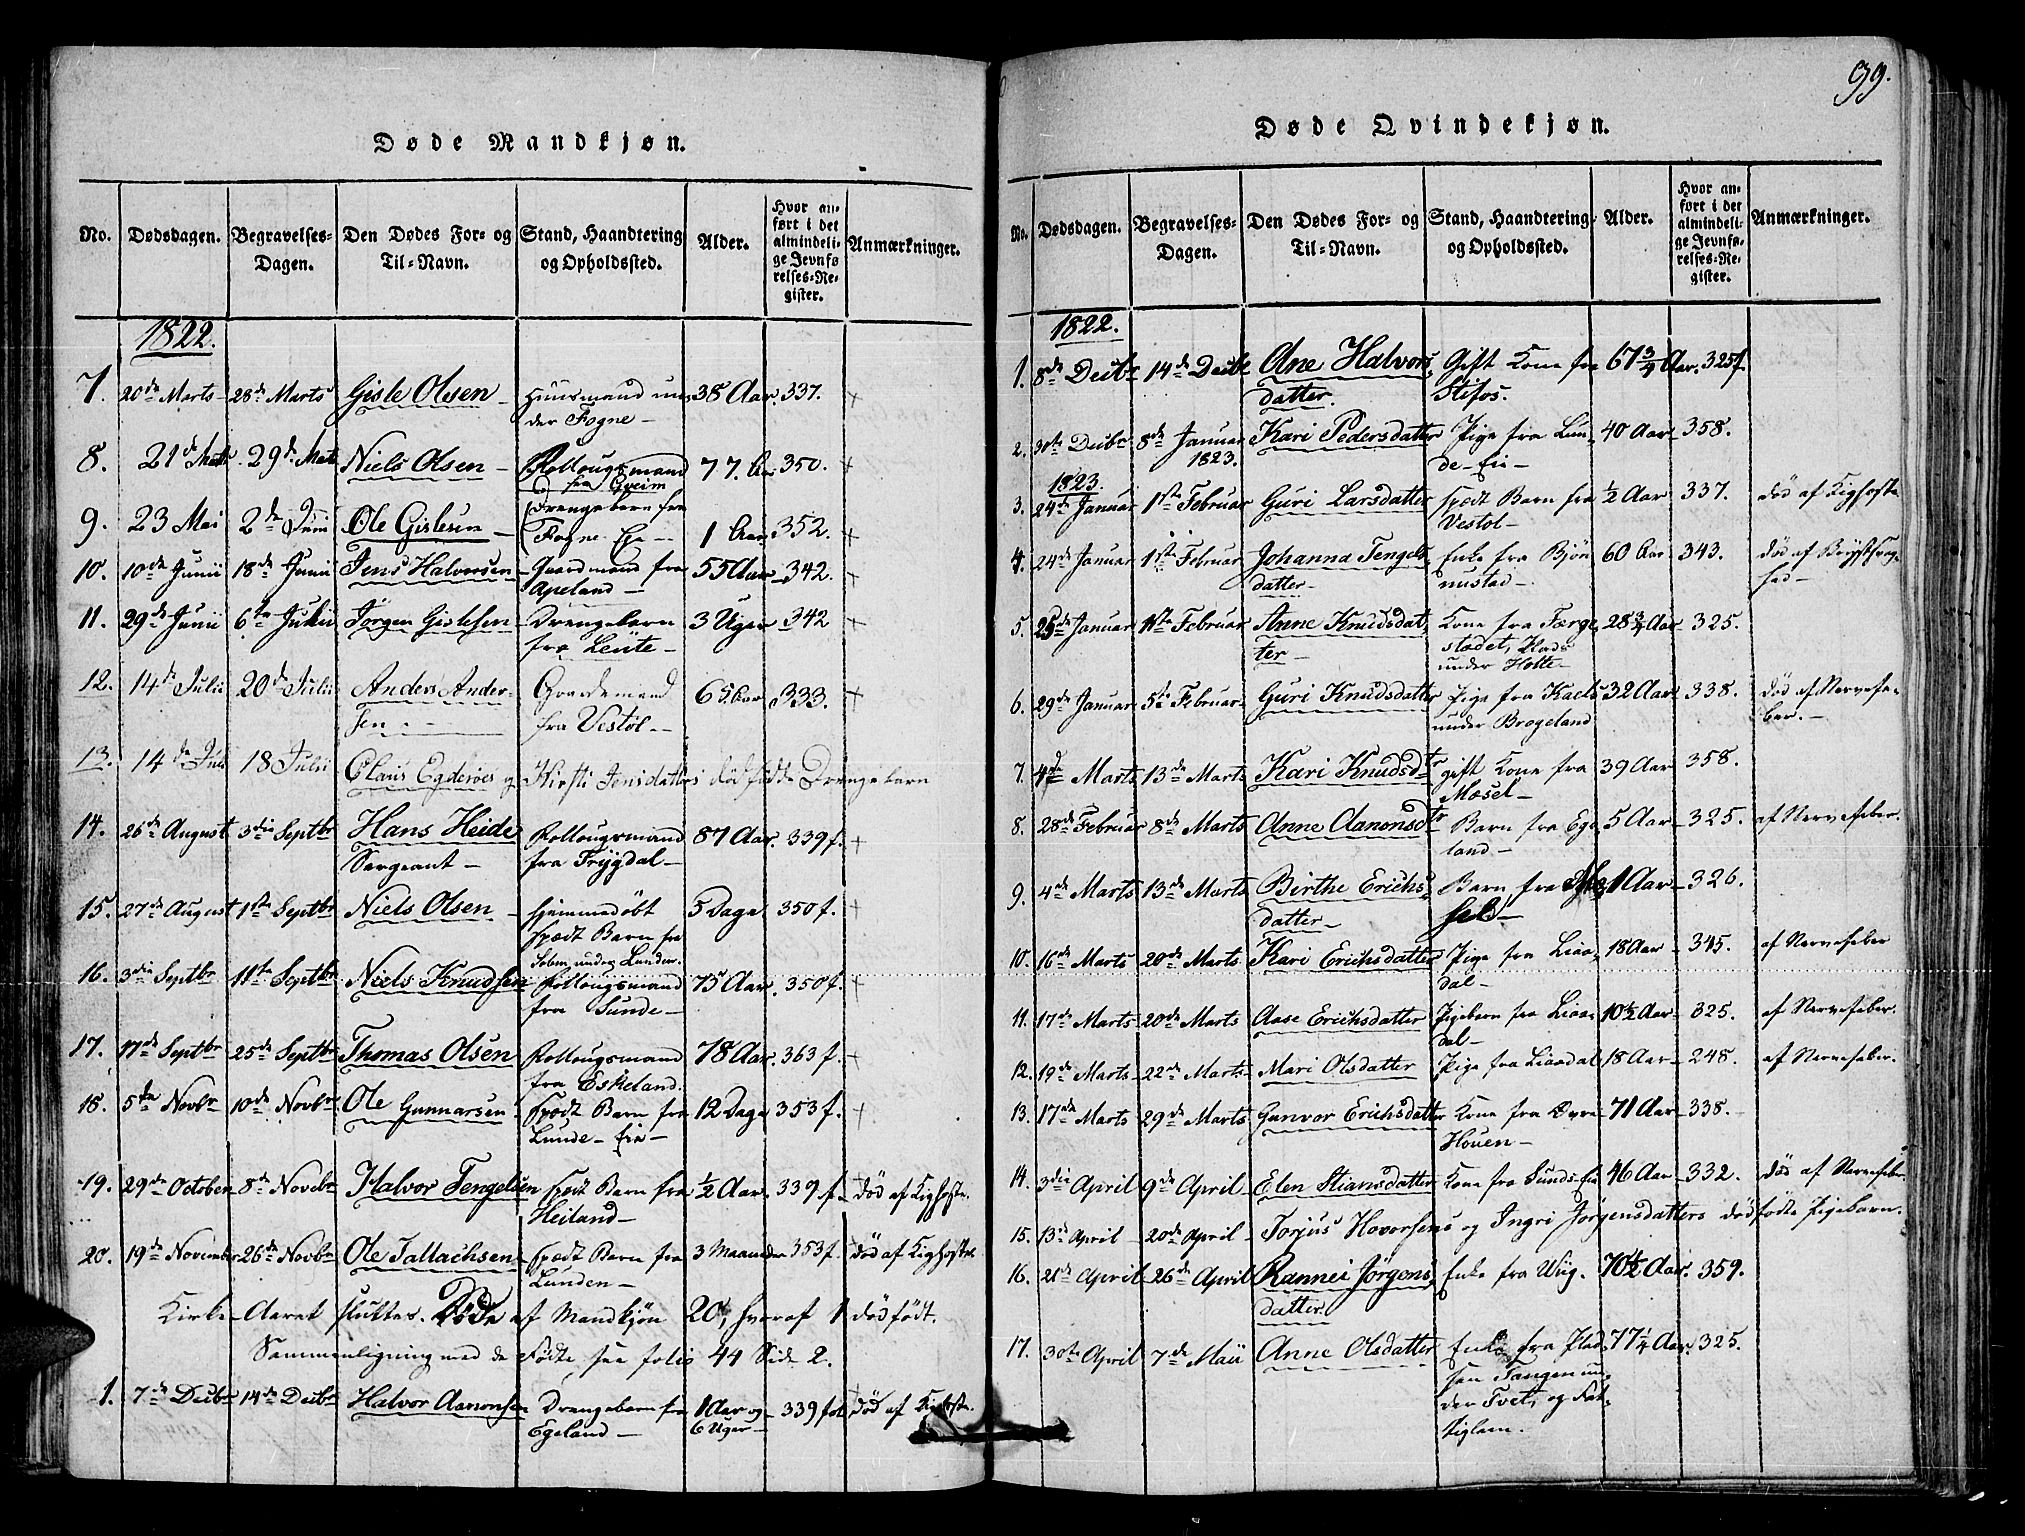 Døde Mandkjøn.
No. Dødsdagen. Begravelses-Dagen. Den Dødes For- og Til-Navn. Stand, Haandtering og Opholdssted. Alder. Hvor anført i det almindelige Jevnførelses-Register. Anmærkninger.
1822.
7. 20de Marts 28de Marts Gisle Olsen Huusmand un- 38 Aar 337. +
der Fogne
8. 21de Marts 29de Marts Niels Olsen Follougsmand 77. Aar 350. +
fra Gveim
9. 23 Mai 2de Junii Ole Gislesen Drengebarn fra 1 Aar 352. +
Fogne Eje
10. 10de Junii 18de Junii Jens Halvorsen Gaardmand fra 55 Aar 342. +
Apeland
11. 29de Junii 6te Julii Jørgen Gislesen Drengebarn 3 Uger 342 +
fra Leute
12. 14de Julii 20de Julii Anders Ander- Gaardemand 65 Aar 333. +
sen fra Vestøl
13. 14de Juli 18 Julii Claus Egderøes og Kirsti Jensdatters dødfødde Drengebarn
14. 26de August 3die Septbr Hans Heide Follougsmand 87 Aar. 339 f. +
Sergeant fra Trygdal
15. 27de August 1ste Septbr Niels Olsen hjemmedøbt 5 Dage 350 f. +
spædt Barn fra
under Lunden
16. 3die Septbr 11te Septbr Niels Knudsen Follougsmand 75 Aar. 350 f. +
fra Sunde
17. 17de Septbr 25de Septbr Thomas Olsen Follougsmand 78 Aar. 363 f. +
fra Eskeland.
18. 5te Novbr 10de Novbr Ole Gunnarsen spædt Barn fra 12 Dage 353 f. +
Lunde-Eie
19. 29de October 8de Novbr Halvor Tengelsen spædt Barn fra 1/2 Aar. 339 f. død af Kighoste.
Heiland
20. 19de November 26de Novbr Ole Tallachsen spædt Barn fra 3 Maaneder 353 f. død af Kighoste.
Lunden
Kirke-Aaret sluttes. Døde af Mandkjøn 20, hvoraf 1 dødfødt.
Sammenligning med de Fødte see folio 44 Side 2.
1. 7de Decbr 14de Decbr Halvor Aanonsen Drengebarn fra 1 Aar og 339 fol død af Kighoste.
Egeland 6 Uger
99.
Døde Qvindekjøn.
No. Dødsdagen. Begravelses-Dagen. Den Dødes For- og Til-Navn. Stand, Haandtering og Opholdssted. Alder. Hvor anført i det almindelige Jevnførelses-Register. Anmærkninger.
1822.
1. 8de Decbr 14de Decbr Ane Halvors- Gift Kone fra 67 3/4 Aar. 325 f.
datter. Stifos.
2. 30te Decbr 8de Januar Kari Pedersdatter Pige fra Lun- 40 Aar 358.
1823. de-Eie
1823.
3. 24de Januar 1ste Februar Guri Larsdatter spædt Barn fra 1/2 Aar 337. død af Kighoste
Vestøl
4. 24de Januar 1ste Februar Johanna Tengels- Enke fra Bjøn- 60 Aar 343. død af Brystsvag-
datter nustad hed
5. 25de Januar 11te Februar Anne Knudsdat- Kone fra Færge- 28 3/4 Aar 325.
ter stadet, Plads
under Holte
6. 29de Januar 5te Februar Guri Knudsdatter Pige fra Kaels 32 Aar 338. død af Nervefe-
under Brogeland ber.
7. 4de Marts 13de Marts Kari Knudsdtr gift Kone fra 39 Aar 358.
Mæsel
8. 28de Februar 8de Marts Anne Aanonsdtr Barn fra Ege- 5 Aar 325. af Nervefeber.
land
9. 4de Marts 13de Marts Birthe Erichs- Barn fra Mæ- 1 Aar 326.
datter sel
10. 16de Marts 20de Marts Kari Erichsdatter Pige fra Liaa- 18 Aar 345. af Nervefeber
dal
11. 17de Marts 20de Marts Aase Erichsdatter Pigebarn fra Liaa- 10 1/2 Aar 325. af Nervefeber.
dal
12. 19de Marts 22de Marts Mari Olsdatter Pige fra Liaadal 18 Aar 248. af Nervefeber.
13. 17de Marts 29de Marts Gunvor Erichsdatter Kone fra Dyre- 71 Aar 338.
Houen
14. 3die April 9de April Elen Stiansdatter Kone fra Sunds-Eie 46 Aar 332. død af Nervefeber
15. 13de April 20de April Torjus Hovorsens og Ingri Jørgensdatters dødfødte Pigebarn.
16. 21de April 26de April Rannei Jørgens- Enke fra Uiig. 70 1/2 Aar. 359.
datter
17. 30te April 7de Maii Anne Olsdatter Enke fra Plad- 77 1/4 Aar. 325.
sen Tangen un-
der Tvet, og Fat-
tiglem.